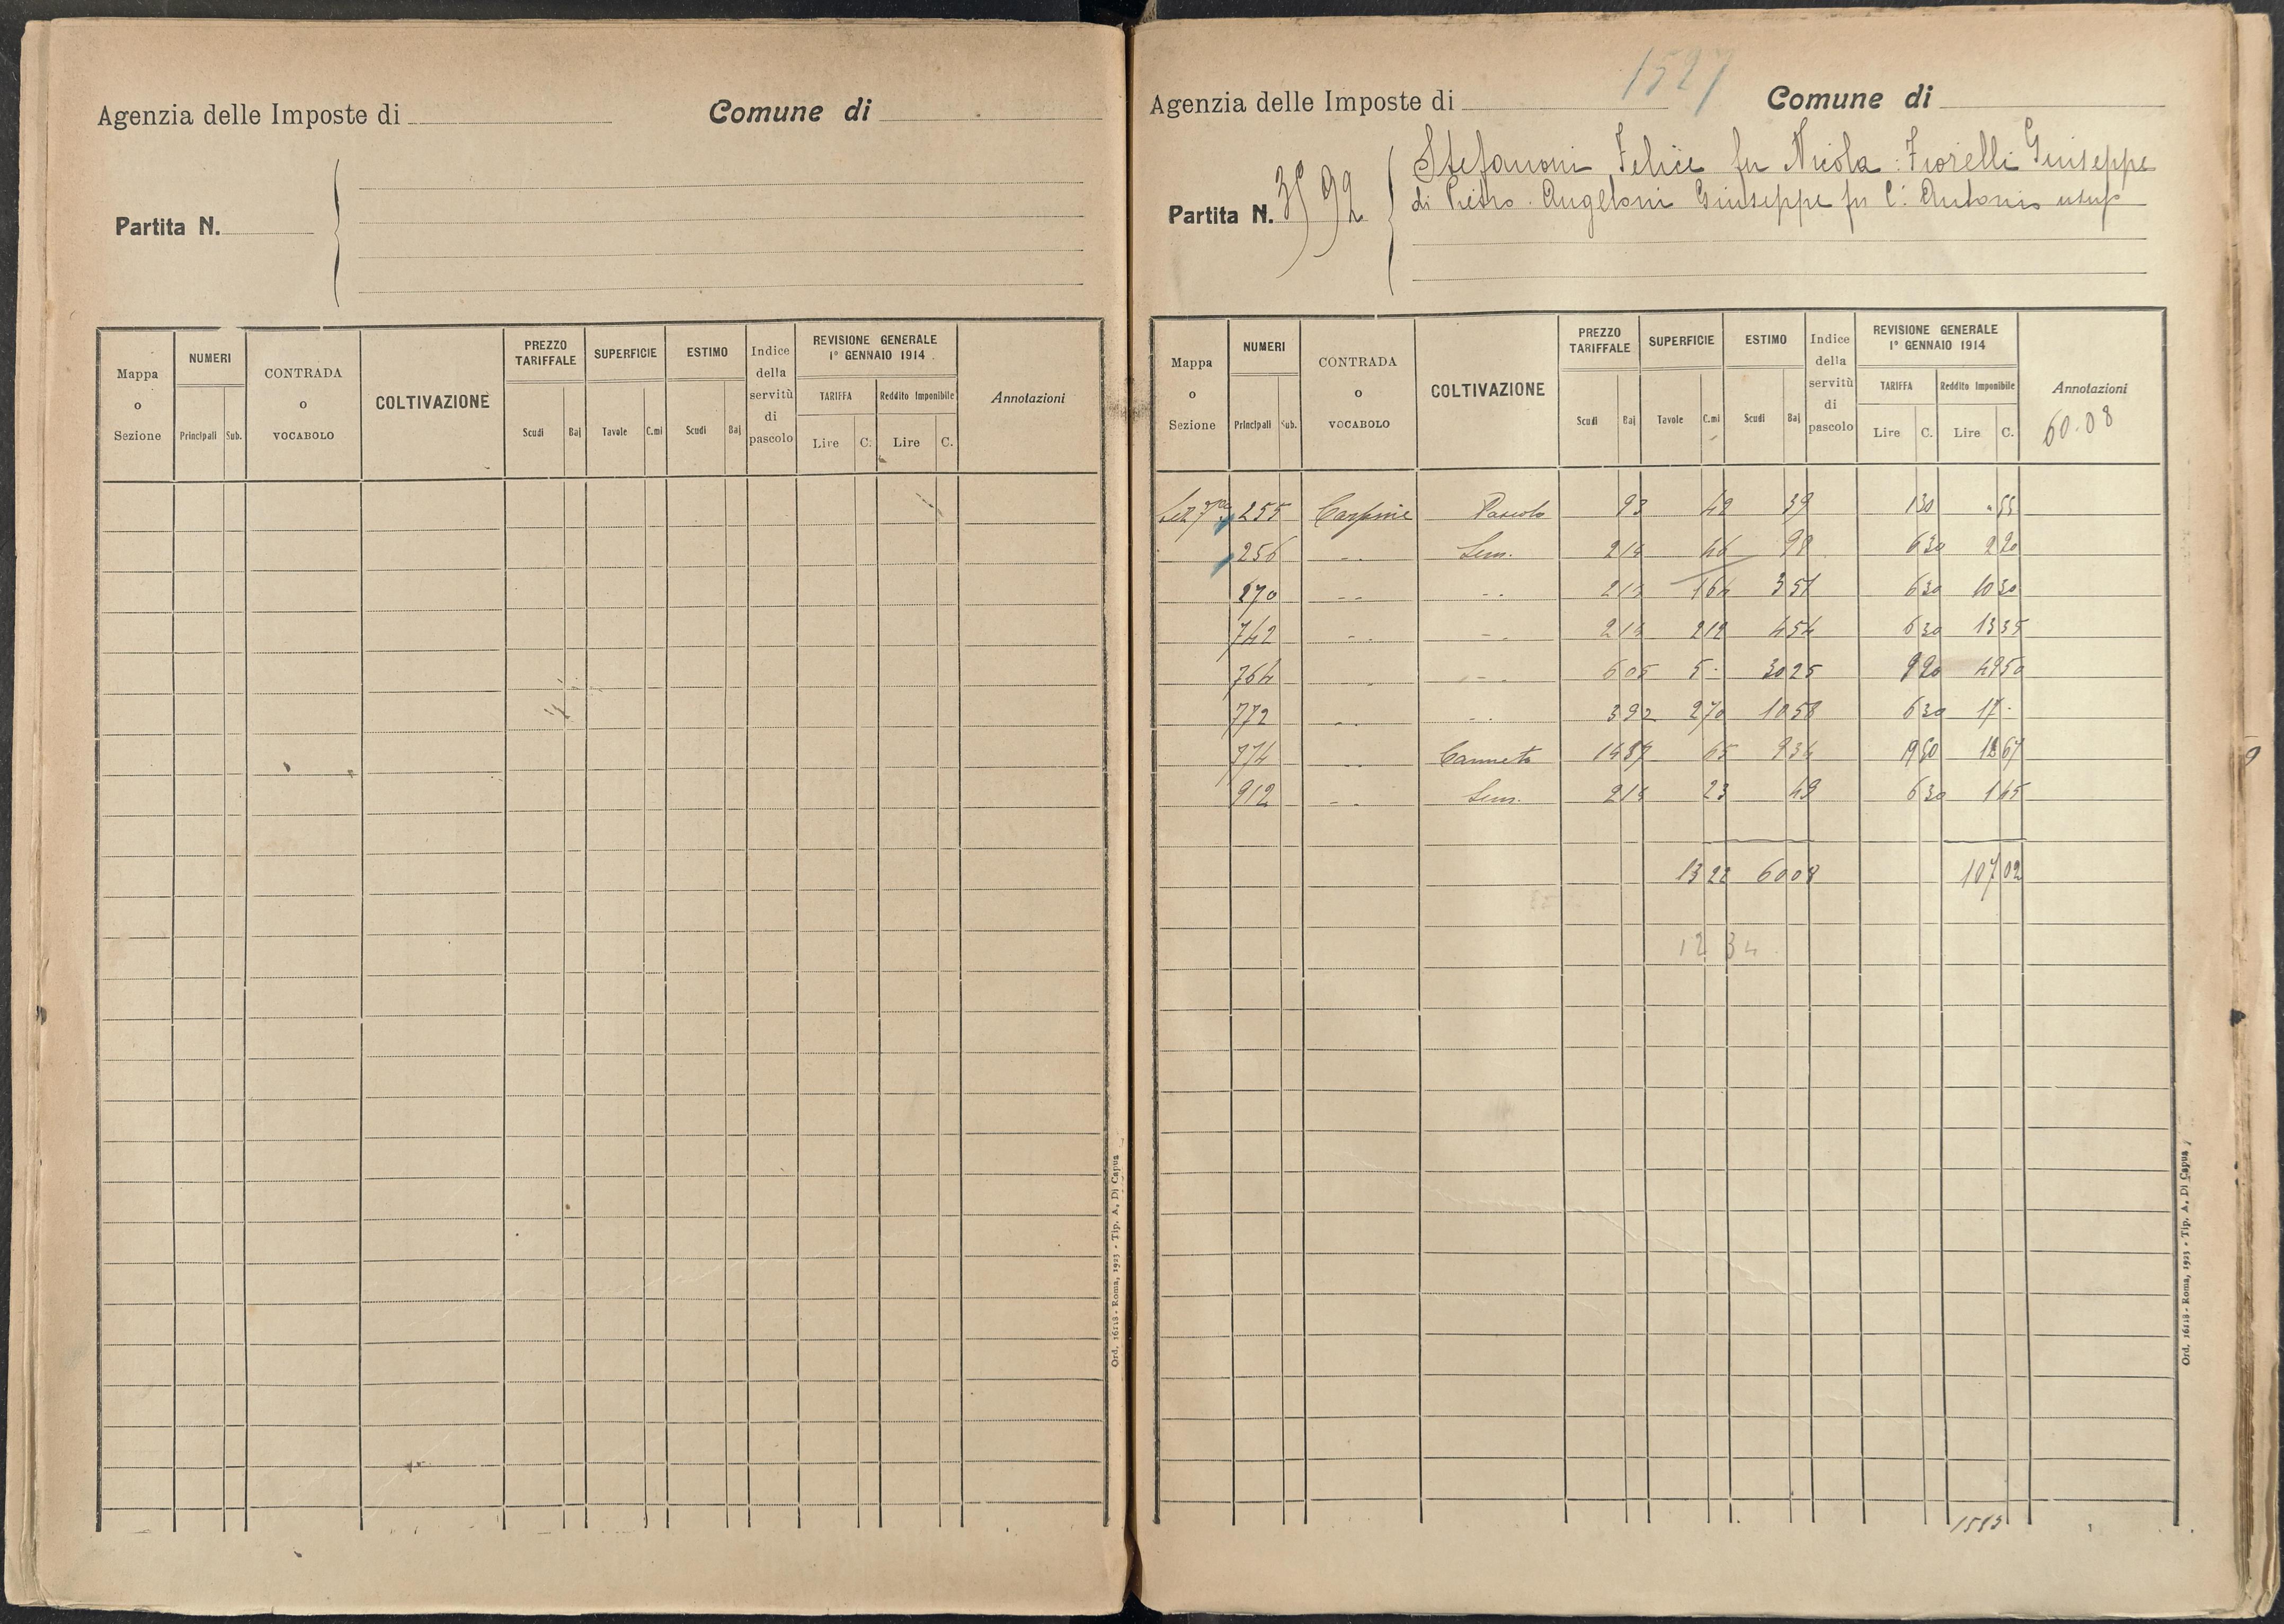 Agenzia delle Imposte di
Comune di
Partita N.
Mappa o Sezione
NUMERI
Principali Sub.
CONTRADA o VOCABOLO
COLTIVAZIONE
PREZZO TARIFFALE
Scudi Baj
SUPERFICIE
Tavole C.mi
ESTIMO
Scudi Baj
Indice della servitù di pascolo
REVISIONE GENERALE 1° GENNAIO 1914
TARIFFA
Lire C.
Reddito Imponibile
Lire C.
Annotazioni
Ord. 16118 - Roma, 1923 - Tip. A. Di Capua
1527
Agenzia delle Imposte di
Comune di
Partita N. 3592
Stefanoni Felice fu Nicola : Fiorelli Giuseppe
di Pietro . Angeloni Giuseppe fu C. Antonio usuf
Mappa o Sezione
NUMERI
Principali Sub.
CONTRADA o VOCABOLO
COLTIVAZIONE
PREZZO TARIFFALE
Scudi Baj
SUPERFICIE
Tavole C.mi
ESTIMO
Scudi Baj
Indice della servitù di pascolo
REVISIONE GENERALE 1° GENNAIO 1914
TARIFFA
Lire C.
Reddito Imponibile
Lire C.
Annotazioni
60.08
Sez 7a 255 Carpine Pascolo 93 42 39 1 30 . 55
256 - . Sem. 2 14 46 98 6 30 2 90
270 - - - . 2 14 1 64 3 51 6 30 10 30
742 - . - . 2 14 2 12 4 54 6 30 13 35
764 - . - - . 6 05 5 - 30 25 9 90 49 50
772 - . - . 3 92 2 70 10 58 6 30 17 -
774 - . Canneto 14 37 65 9 34 19 50 12 67
912 - . Sem. 2 14 23 49 6 30 1 45
13 22 60 08 107 02
12 34
Ord. 16118 - Roma, 1923 - Tip. A. Di Capua